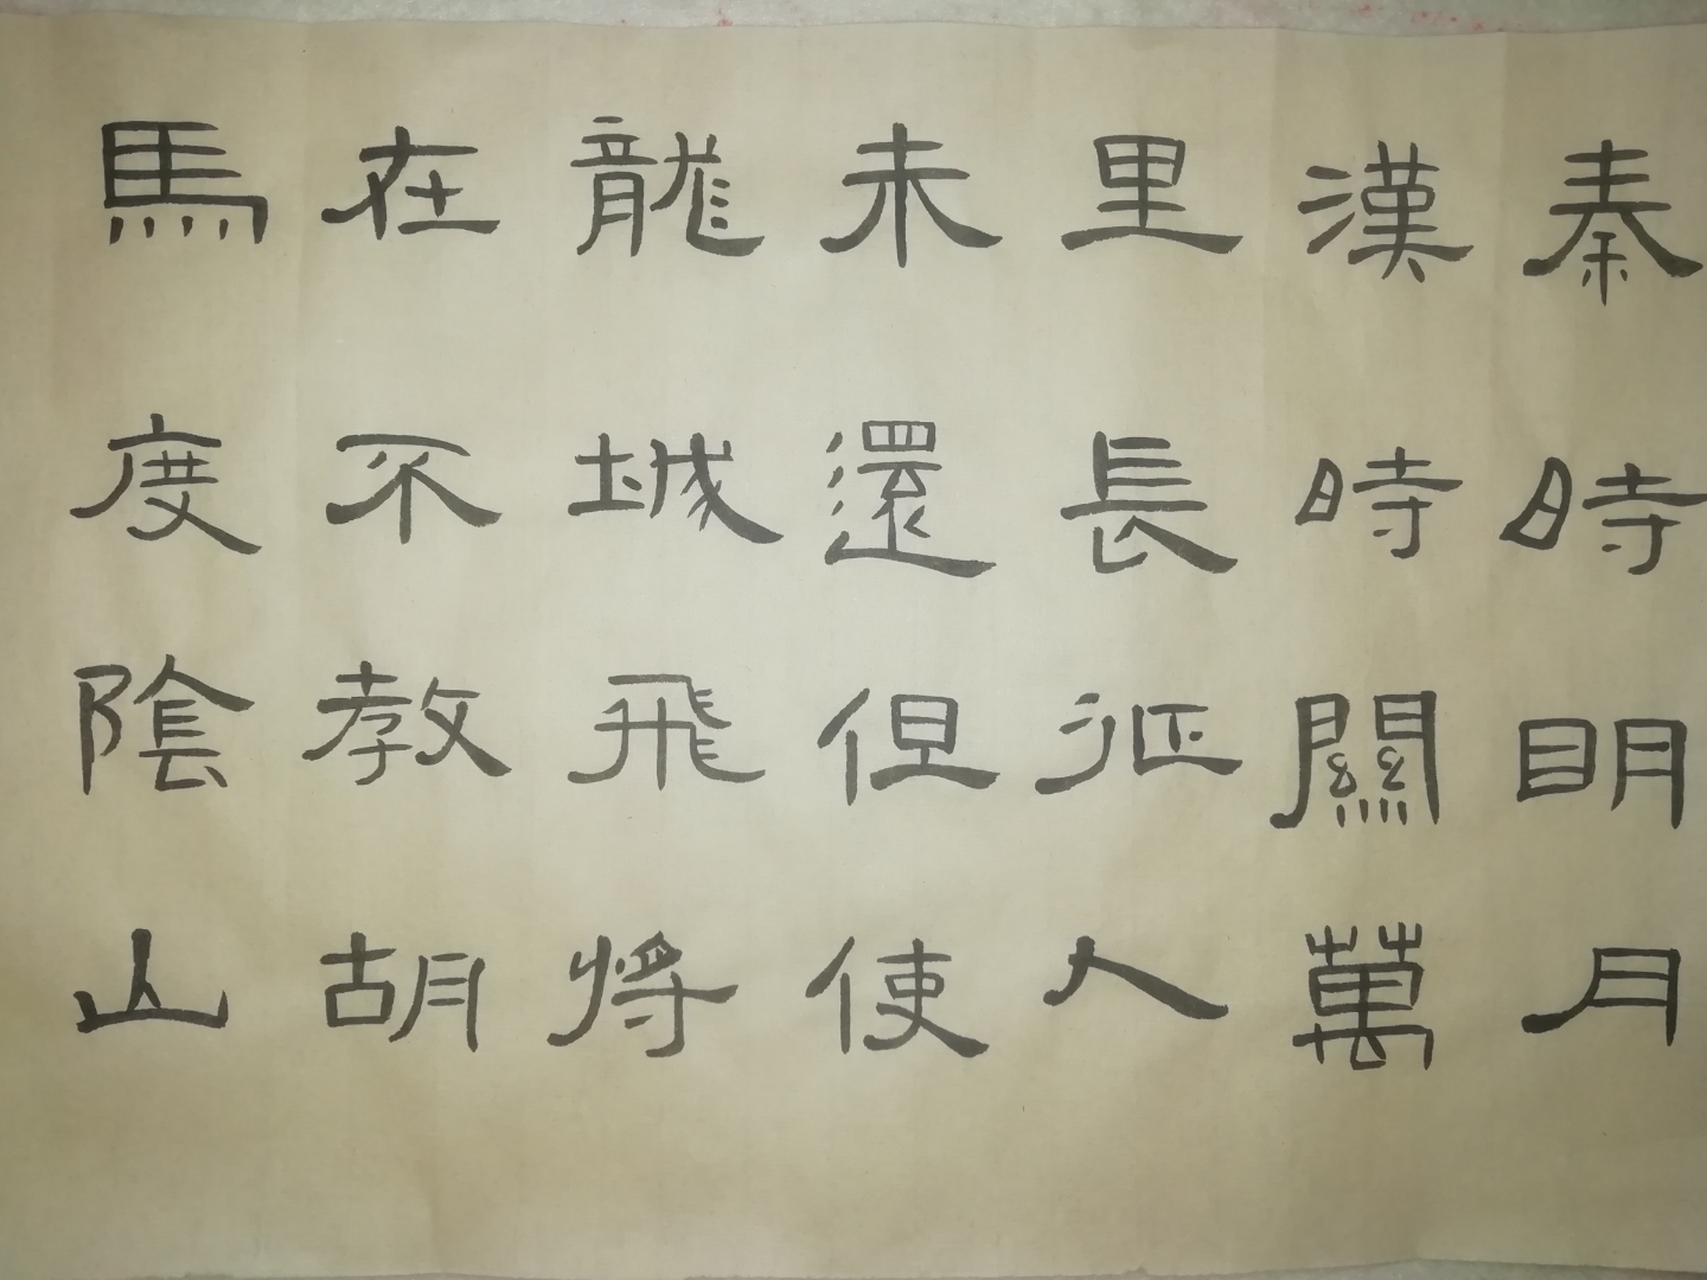 秦時明月
漢時關萬
里長征人
未還但使
龍城飛將
在不教胡
馬度陰山